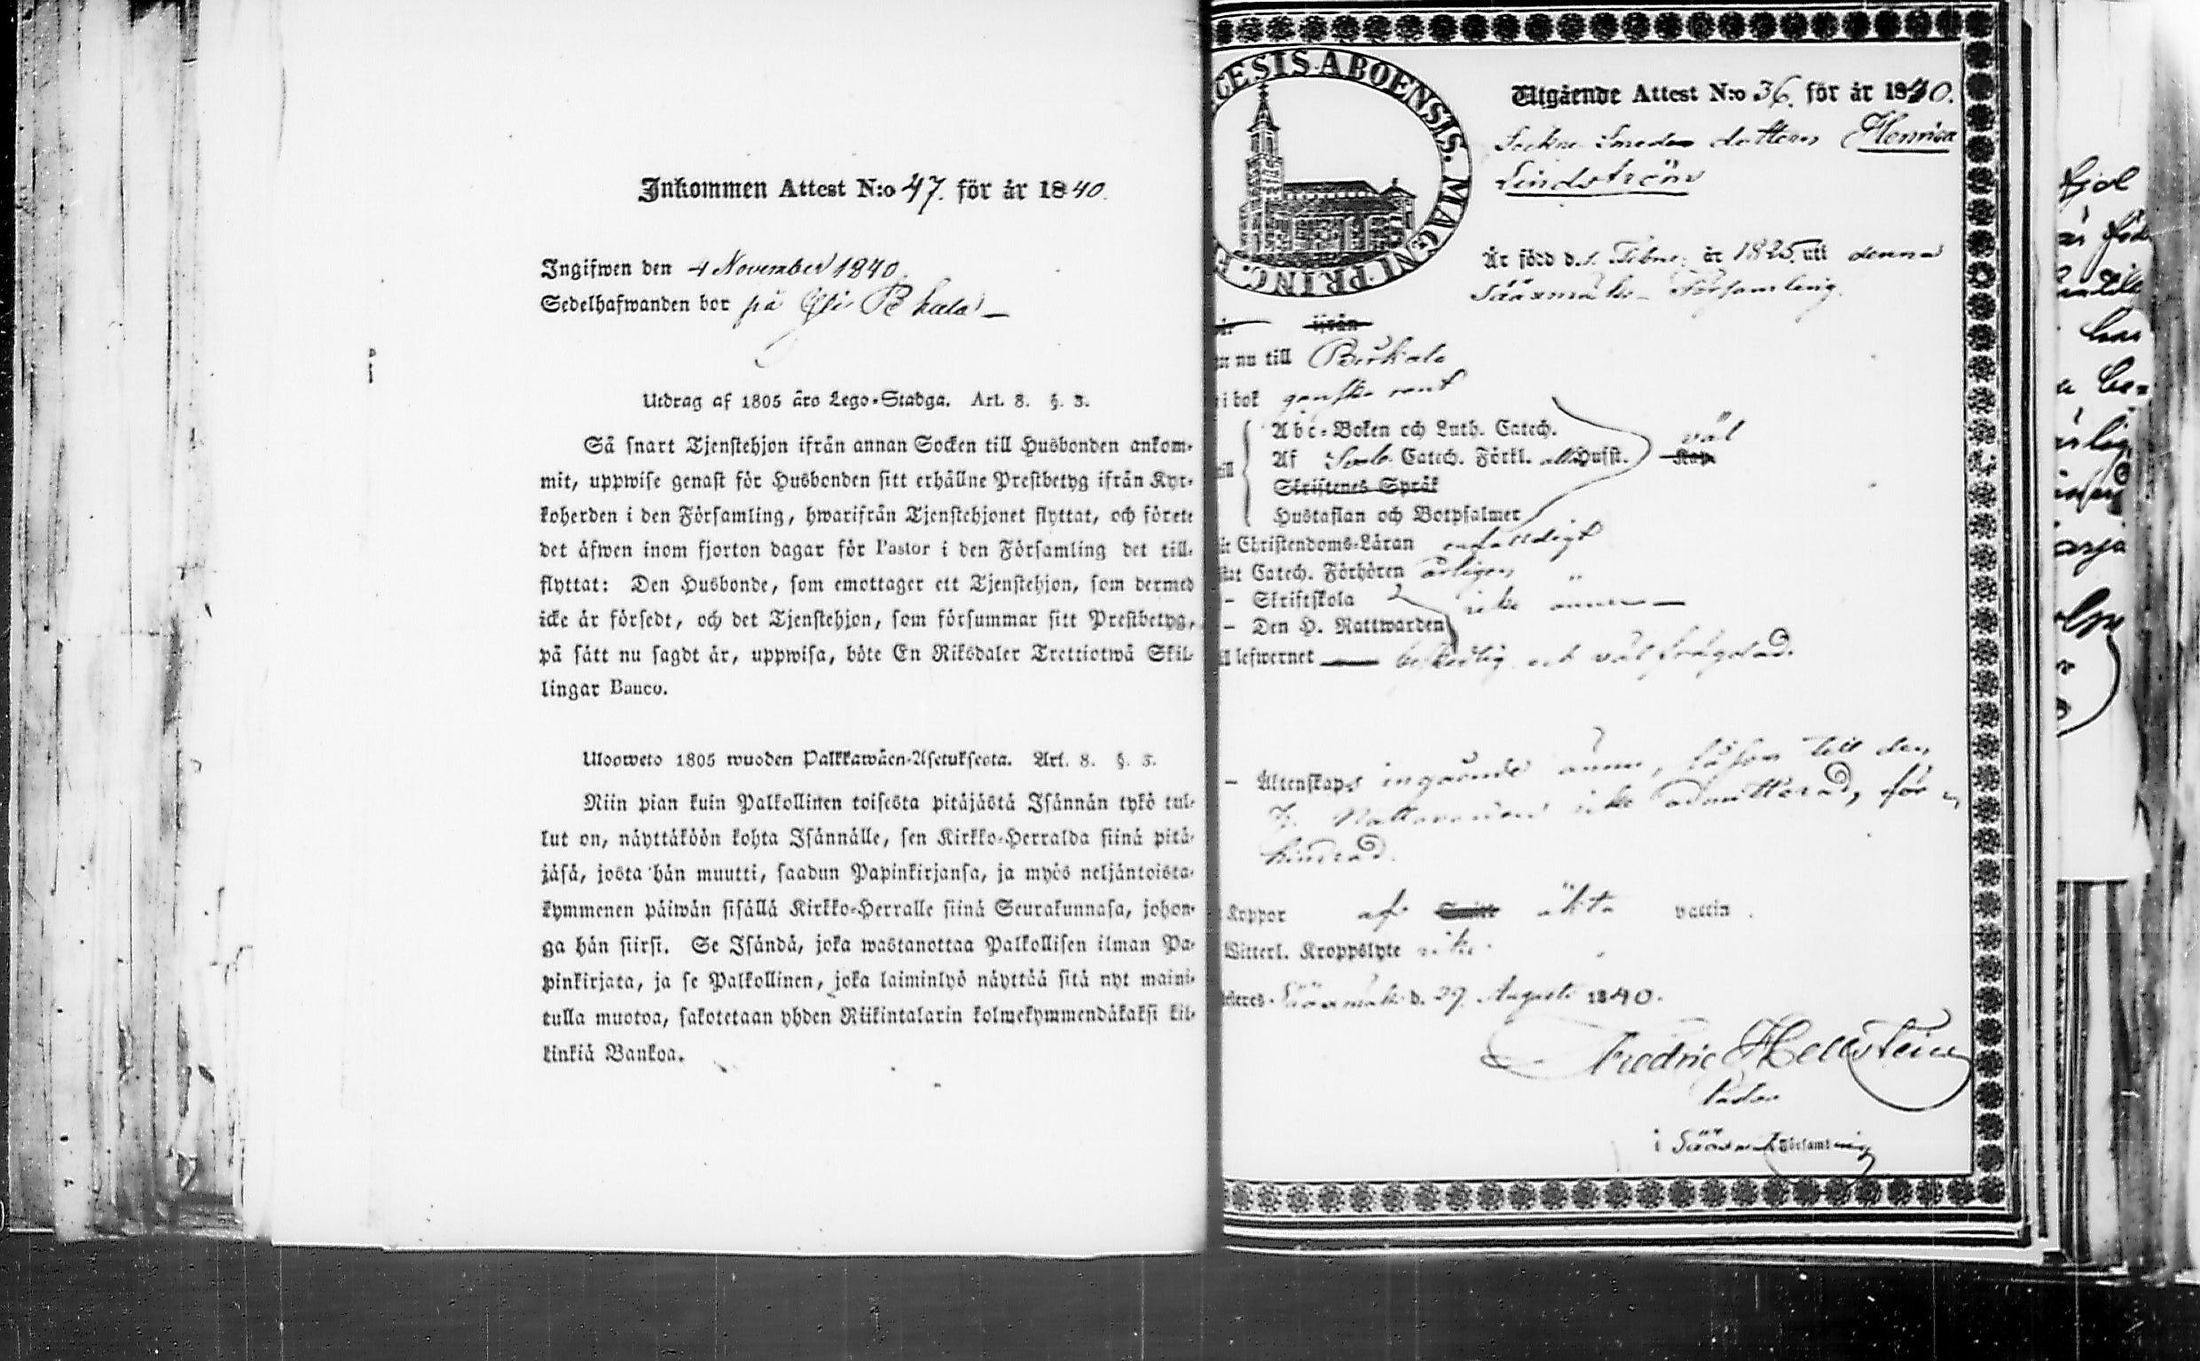 Inkommen Attest N:o 47. för år 1840.
Ingifwen den 4 November 1840.
Sedelhafwanden bor på
Utdrag af 1805 års Lego-Stadga. Art. 8. §. 3.
Så snart Tjenstehjon ifrån annan Socken till Husbonden ankom-
mit, uppwise genast för Husbonden sitt erhållne Prestbetyg ifrån Kyr-
koherden i den Församling, hwarifrån Tjenstehjonet flyttat, och förete
det äfwen inom fjorton dagar för Pastor i den Församling det till-
flyttat: Den Husbonde, som emottager ett Tjenstehjon, som dermed
icke är försedt, och det Tjenstehjon, som försummar sitt Prestbetyg,
på sätt nu sagdt är, uppwisa, böte En Riksdaler Trettiotwå Skil-
lingar Banco.
Uloosweto 1805 wuoden Palkkawäen-Asetuksesta. Art. 8. §. 3.
Niin pian kuin Palkollinen toisesta pitäjästä Isännän tykö tul-
lut on, näyttäköön kohta Isännälle, sen Kirkko-Herralda siinä pitä-
jäsä, josta hän muutti, saadun Papinkirjansa, ja myös neljäntoista-
kymmenen päiwän sisällä Kirkko-Herralle siinä Seurakunnasa, johon-
ga hän siirsi. Se Isändä, joka wastanottaa Palkollisen ilman Pa-
pinkirjata, ja se Palkollinen, joka laiminlyö näyttää sitä nyt maini-
tulla muotoa, sakotetaan yhden Riikintalarin kolmekymmendäkaksi kil-
linkiä Bankoa.
ECESIS ABOENSIS. MAGNI PRINC. F
Utgående Attest N:o 36. för år 1840.
Sockne Smeds dottern Henrica
Lindström
Är född d. 1. Febru: år 1825, uti denna
Sääxmäki Församling.
ifrån
nu till Birkala
i bok ganska rent
Abc-Boken och Luth. Catech.
Af Catech. Förkl. Husst. väl
Kap.
Skriftenes Språk
Hustaflan och Botpsalmer
Christendoms-Läran enfaldigt
Catech. Förhören årligen
- Skriftskola
icke ännu
- Den H. Nattwarden
lefwernet beskedlig och väl frägdad.
- Äktenskaps ingående ännu, såsom till den
H. Nattvarden icke admitterad, för-
hindrad.
Koppor af äkta vaccin.
Witterl. Kroppslyte icke.
Sääxmäki d. 29. Augusti 1840.
Fredric Hellstein
Pastor
i Sääxmäki Församling